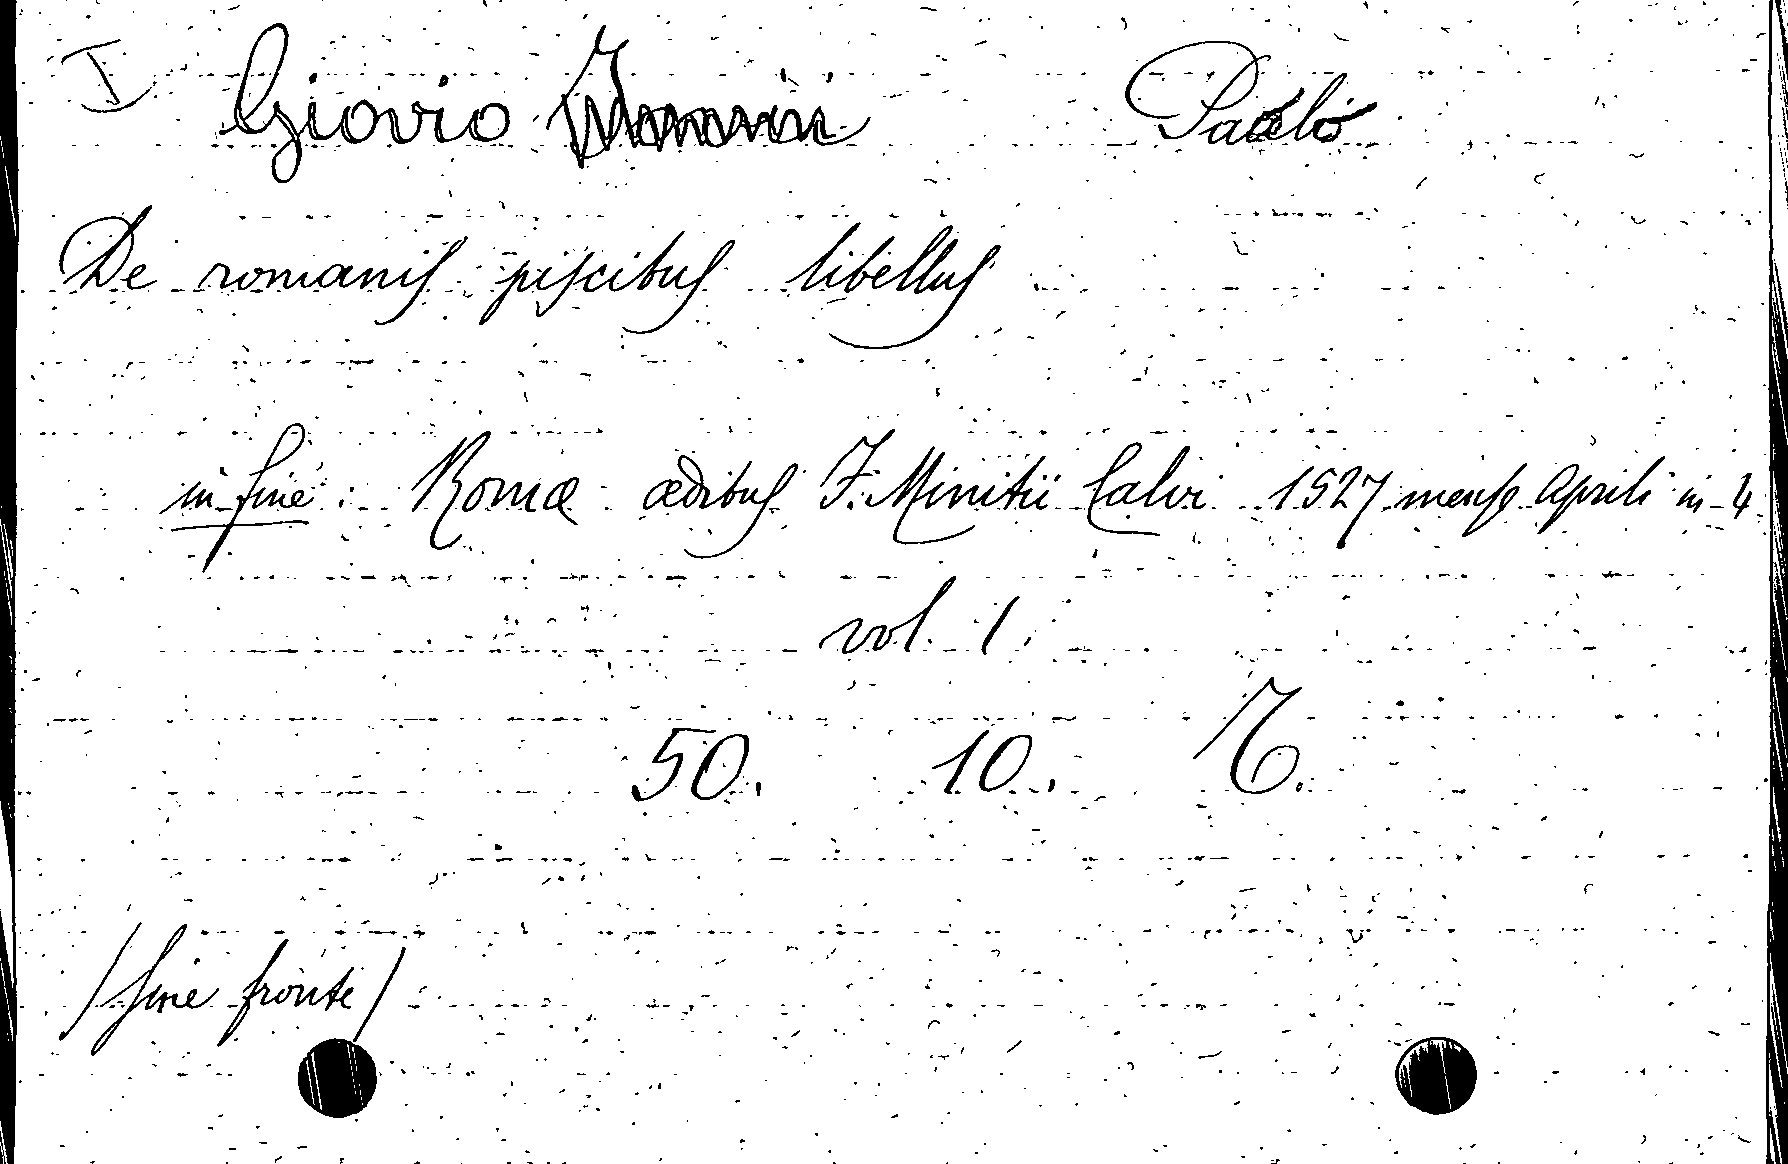 I Giovio Paolo
De romanis piscibus libellus
in fine: Romæ ædibus F. Minitii Calvi 1527 mense Aprili in-4
vol. 1.
50. 10. C.
/sine fronte/